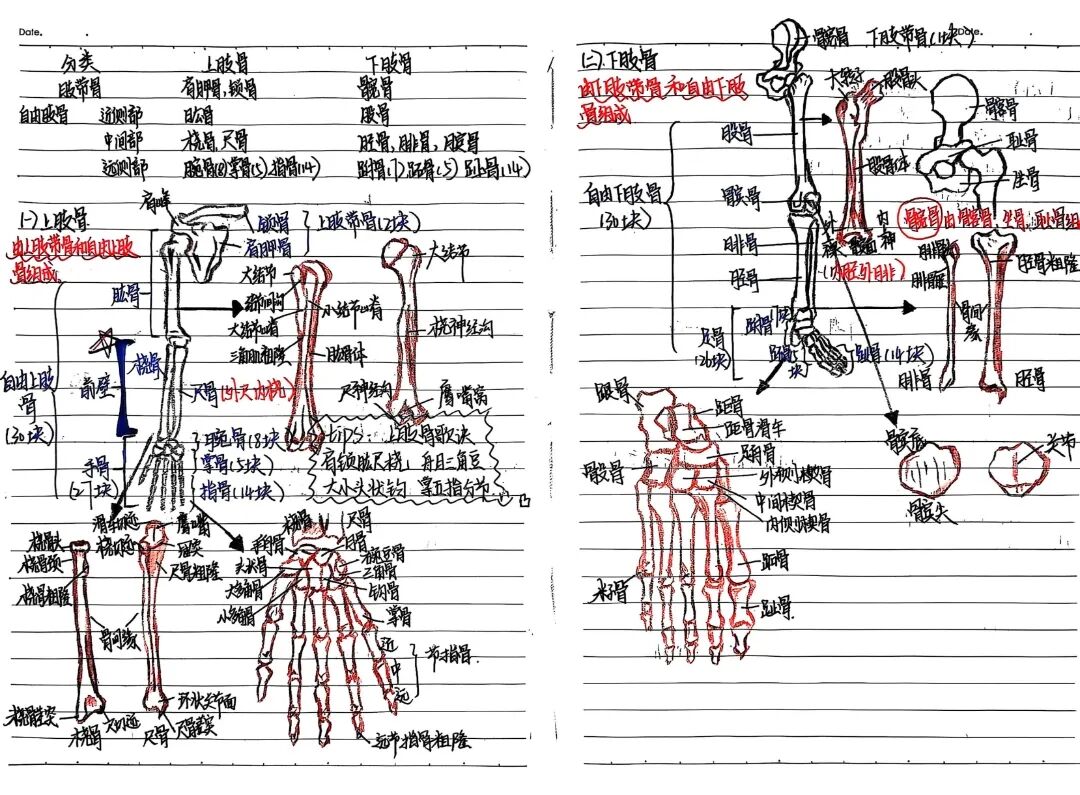 Date.
分类 上肢骨 下肢骨
肢带骨 肩胛骨,锁骨 髋骨
自由肢骨 近测部 肱骨 股骨
中间部 桡骨,尺骨 胫骨,腓骨,髌骨
远测部 腕骨(8)掌骨(5),指骨(14) 跗骨(7),跖骨(5) 趾骨(14)
(一)上肢骨
由上肢带骨和自由上肢
骨组成.
肩峰
锁骨
肩胛骨
上肢带骨(2块)
肱骨
大结节
结节间沟
大结节嵴
三角肌粗隆
小结节嵴
肱骨体
大结节
桡神经沟
尺神经沟
鹰嘴窝
自由上肢
骨
(30块)
前臂
桡骨
尺骨(外尺内桡)
手骨
(21块)
腕骨(8块)
掌骨(5块)
指骨(14块)
tips: 上肢骨歌诀
肩锁肱尺桡,舟月三角豆
大小头状钩,掌五指分节
滑车切迹
鹰嘴
桡骨头
桡骨颈
桡骨粗隆
桡切迹
冠突
尺骨粗隆
骨间缘
桡骨茎突
尺切迹
桡骨
尺骨
尺骨茎突
环状关节面
桡骨
尺骨
手舟骨
月骨
头状骨
豌豆骨
三角骨
大多角骨
钩骨
小多角骨
掌骨
近
中
远
节指骨.
远节指骨粗隆
Date.
(二).下肢骨
由下肢带骨和自由下肢
骨组成
髋骨
下肢带骨(1块)
大转子
股骨头
股骨
股骨体
髋骨
耻骨
坐骨
自由下肢骨
(30块)
髌骨
腓骨
胫骨
外
内
髁
髌面
髁
(内胫外腓)
髋骨由髂骨,坐骨,耻骨组
腓骨头
腓骨颈
胫骨粗隆
骨间
缘
腓骨
胫骨
足骨
(26块)
跗骨7块
跖骨5
块
趾骨(14块)
跟骨
距骨
距骨滑车
足舟骨
骰骨
外侧楔骨
中间楔骨
内侧楔骨
跖骨
籽骨
趾骨
髌底
髌尖
关节